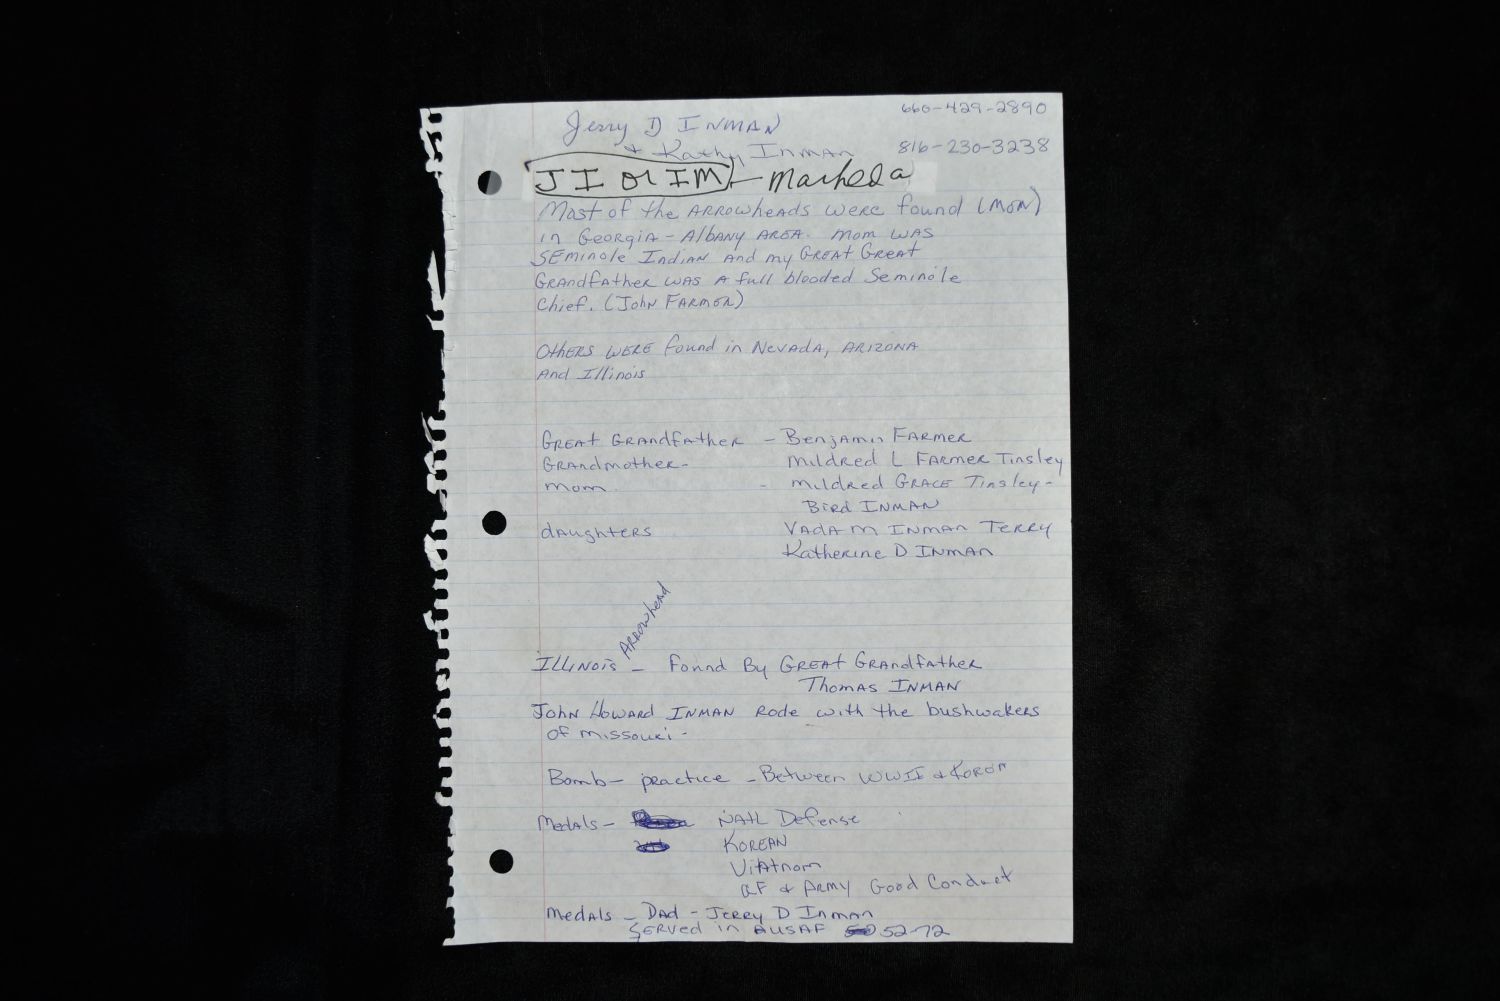 Jerry D INMAN
660-429-2890
& Kathy INMAN
816-230-3238
JI or IM - Marked a
Most of the ARROWHEADS WERE found (MOM)
in GEORGIA - Albany AREA. Mom WAS
SEminole Indian and my GREAT GREAT
GRANDfather WAS A full blooded Seminole
Chief. (John FARMER)
OTHERS WERE found in NEVADA, ARIZONA
And Illinois
GREAT GRANDfather - Benjamin FARMER
GRANDmother - Mildred L FARMER Tinsley
mom - Mildred GRACE Tinsley -
Bird INMAN
dAughters VADA M INMAN TERRY
Katherine D INMAN
ARROWhead
ILLINOIS - Found By GREAT GRANDfather
Thomas INMAN
John Howard INMAN Rode with the bushwakers
of missouri -
Bomb - practice - Between WWII & Korea
Medals - NATL Defense
KOREAN
VIATnam
aF & ARMY Good Conduct
Medals - DAD - JERRY D INMAN
SERVED in AUSAF 52-72